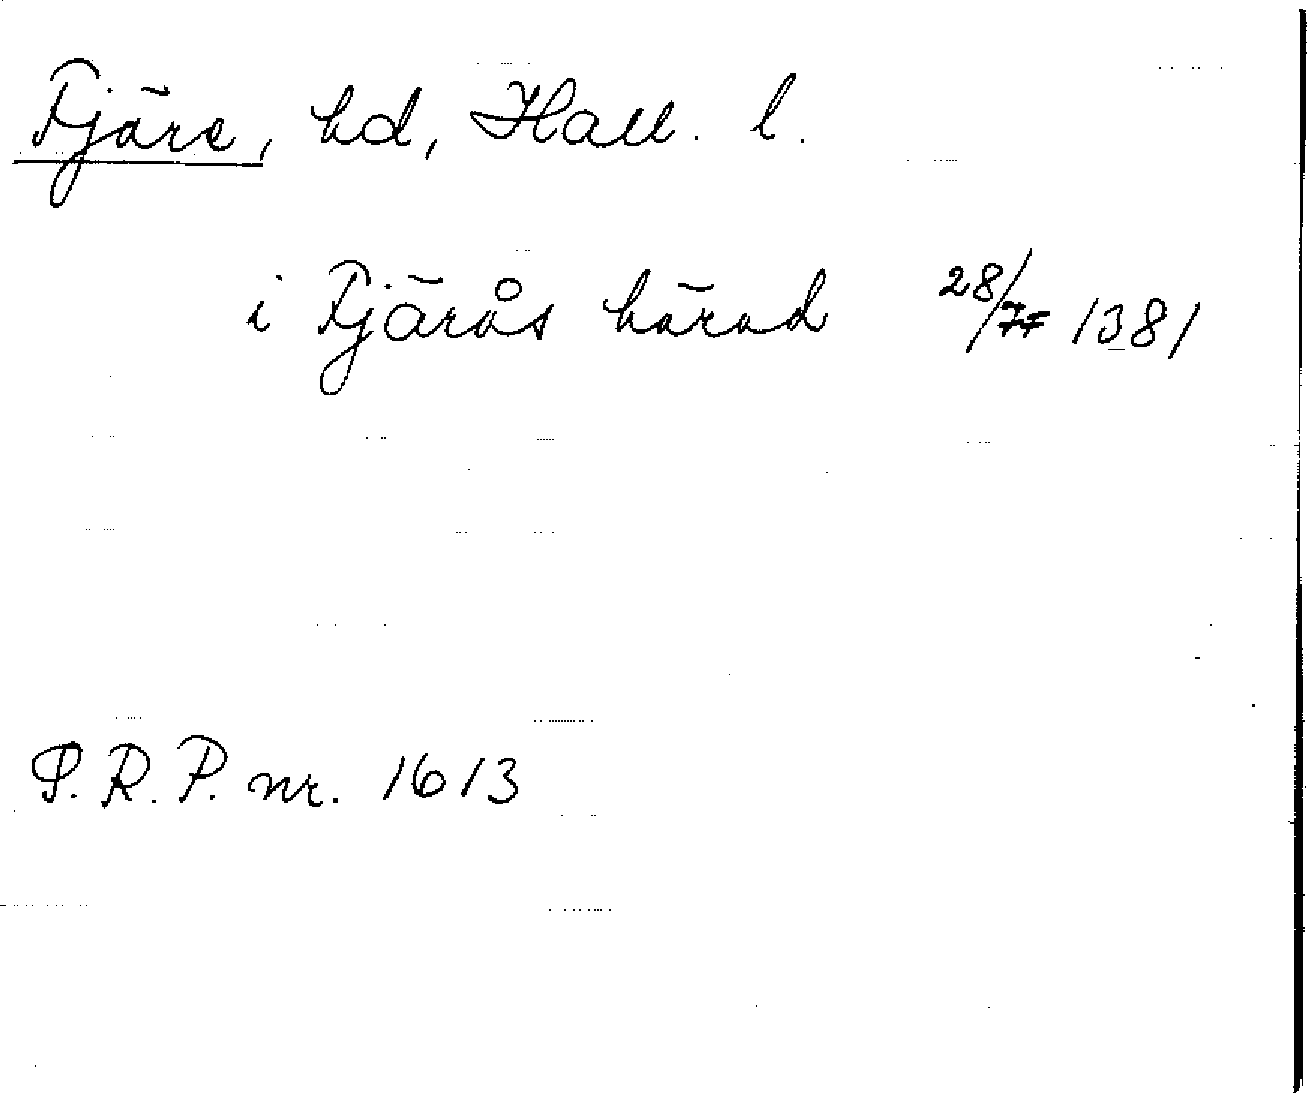 Fjäre, hd, Hall. l.
i Fjärås härad 28/7 1381
S.R.P. nr. 1613